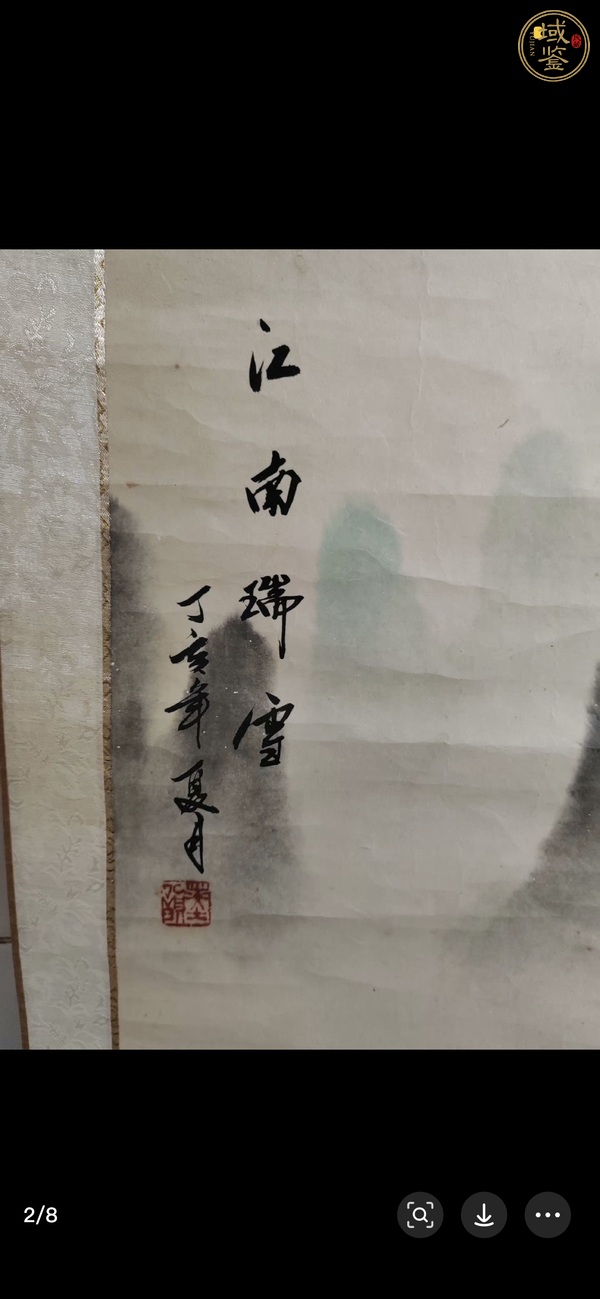 域鉴
YUJIAN
江南瑞雪
丁亥年夏月
2/8